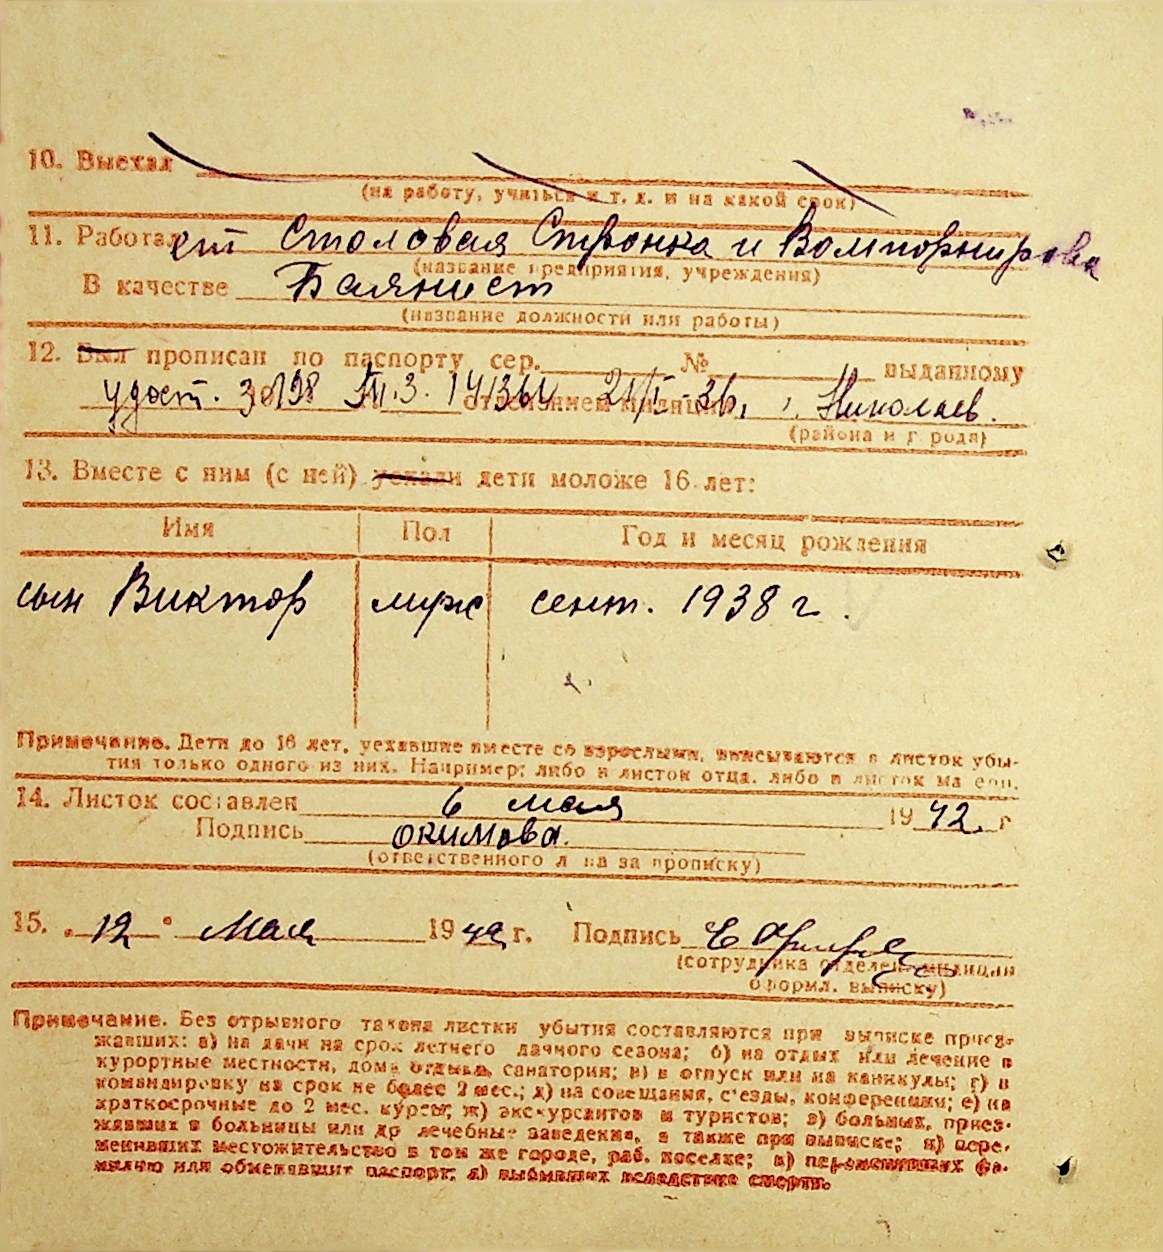 10. Выехал
(на работу, учиться и т. д. и на какой срок)
11. Работает Столовая Стронка и
(название предприятия, учреждения)
В качестве Баянист
(название должности или работы)
12. Был прописан по паспорту сер. № выданному
удост. отделением милиции г. Николаев.
(района и города)
13. Вместе с ним (с ней) уехали дети моложе 16 лет:
Имя Пол Год и месяц рождения
сын Виктор муж сент. 1938 г.
Примечание. Дети до 16 лет, уехавшие вместе со взрослыми, вписываются в листок убы-
тия только одного из них. Например: либо в листок отца, либо в листок матери.
14. Листок составлен 6 мая 1942 г
Подпись Окимова.
(ответственного лица за прописку)
15. "12" Мая 1942 г. Подпись
(сотрудника отделен. милиции
оформл. выписку)
Примечание. Без отрывного талона листки убытия составляются при выписке приез-
жавших: а) на дачи на срок летнего дачного сезона; б) на отдых или лечение в
курортные местности, дома отдыха, санатории; в) в отпуск или на каникулы; г) в
командировку на срок не более 2 мес.; д) на совещания, с'езды, конференции; е) на
краткосрочные до 2 мес. курсы; ж) экскурсантов и туристов; з) больных, приез-
жавших в больницы или др лечебные заведения, а также при выписке; и) пере-
менивших местожительство в том же городе, раб. поселке; к) переменивших фа-
милию или обменявших паспорт; л) выбывших вследствие смерти.